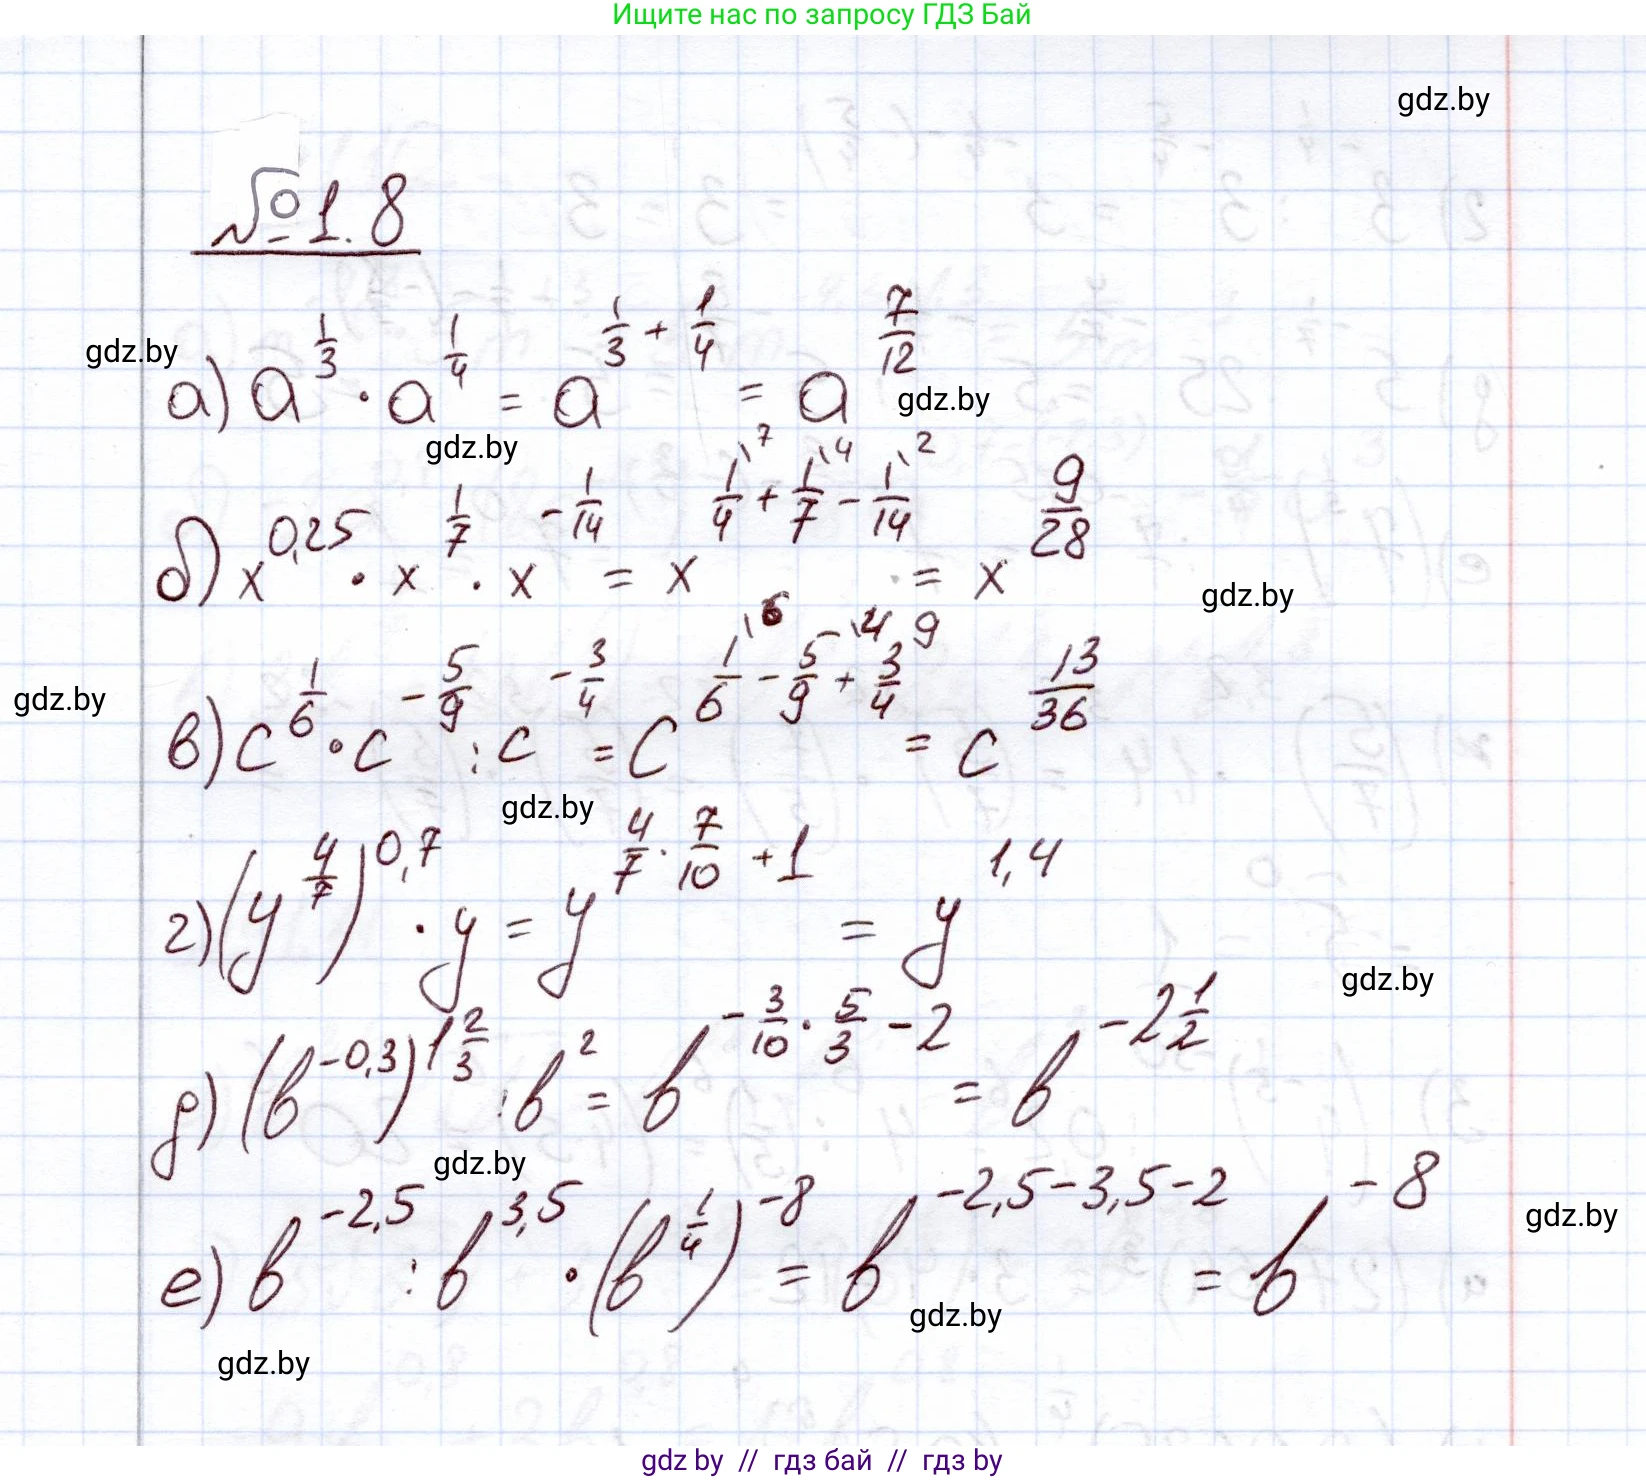 Ищите нас по запросу ГДЗ Бай
gdz.by
№ 1.8
gdz.by
а) a^{1/3} · a^{1/4} = a^{1/3 + 1/4} = a^{7/12}
gdz.by
gdz.by
б) x^{0,25} · x^{1/7} · x^{-1/14} = x^{1/4\7 + 1/7\4 - 1/14\2} = x^{9/28}
gdz.by
gdz.by
в) c^{1/6} · c^{-5/9} : c^{-3/4} = c^{1/6\6 - 5/9\4 + 3/4\9} = c^{13/36}
gdz.by
г) (y^{4/7})^{0,7} · y = y^{4/7 · 7/10 + 1} = y^{1,4}
gdz.by
д) (b^{-0,3})^{1 2/3} : b^2 = b^{-3/10 · 5/3 - 2} = b^{-2 1/2}
gdz.by
е) b^{-2,5} : b^{3,5} · (b^{1/4})^{-8} = b^{-2,5-3,5-2} = b^{-8}
gdz.by
gdz.by
gdz.by
gdz by // гдз бай // гдз by